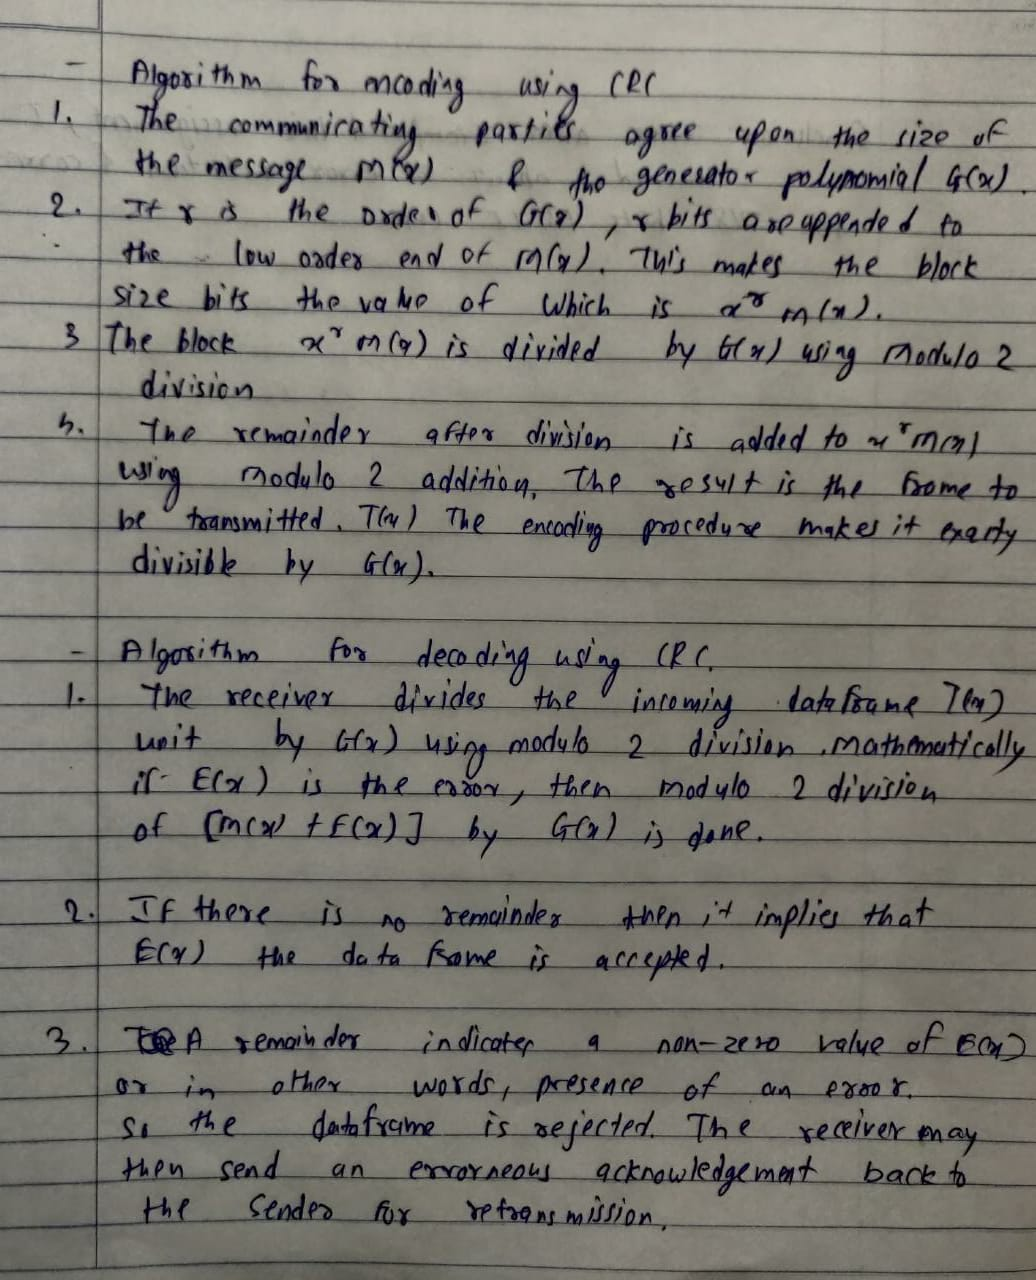 - Algorithm for encoding using CRC
1. The communicating parties agree upon the size of
the message M(x) & the generator polynomial G(x).
2. If r is the order of G(x), r bits are appended to
the low order end of M(x). This makes the block
size bits the value of which is x^r m(x).
3 The block x^r m(x) is divided by G(x) using modulo 2
division
4. The remainder after division is added to x^r m(x)
using modulo 2 addition. The result is the frame to
be transmitted. T(x) The encoding procedure makes it exacty
divisible by G(x).
- Algorithm for decoding using CRC.
1. The receiver divides the incoming dataframe T(x)
unit by G(x) using modulo 2 division. Mathematically
if E(x) is the error, then modulo 2 division
of [M(x) + E(x)] by G(x) is done.
2. If there is no remainder then it implies that
E(x) the data frame is accepted.
3. A remainder indicates a non-zero value of E(x)
or in other words, presence of an error.
So the dataframe is rejected. The receiver may
then send an errorneous acknowledgement back to
the sender for retransmission.